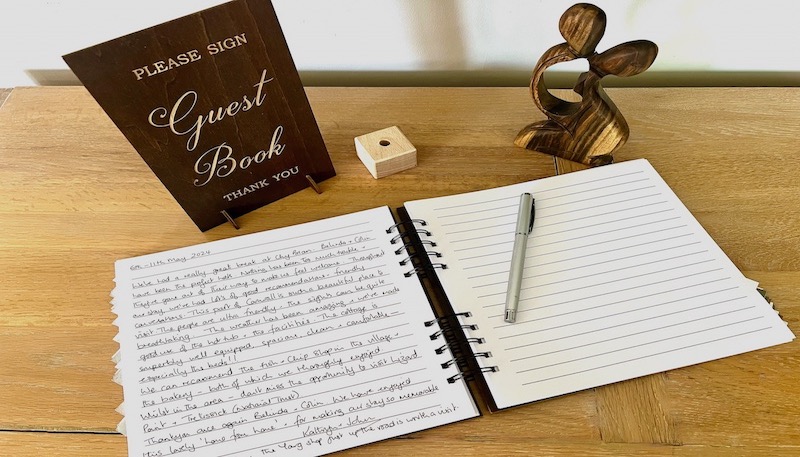 PLEASE SIGN
Guest
Book
THANK YOU
6th - 11th May 2024
We've had a really great break at Chy Bean Belinda + Colin
have been the perfect hosts. Nothing has been too much trouble +
they've gone out of their way to make us feel welcome. Throughout
our stay, we've had lots of good recommendations + friendly
conversations. This part of Cornwall is such a beautiful place to
visit. The people are ultra friendly + the sights can be quite
breathtaking. The weather has been amazing + we've made
good use of the hot tub + the facilities. The cottage is
superbly well equipped, spacious, clean + comfortable -
especially the beds!!
We can recommend the Fish + Chip Shop in the village +
the bakery - both of which we thoroughly enjoyed.
Whilst in the area - don't miss the opportunity to visit Lizard
Point + Trelissick (National Trust)
Thankyou once again Belinda + Colin. We have enjoyed
this lovely 'home from home' + for making our stay so memorable
Kathryn + John
the Yarg shop just up the road is worth a visit.